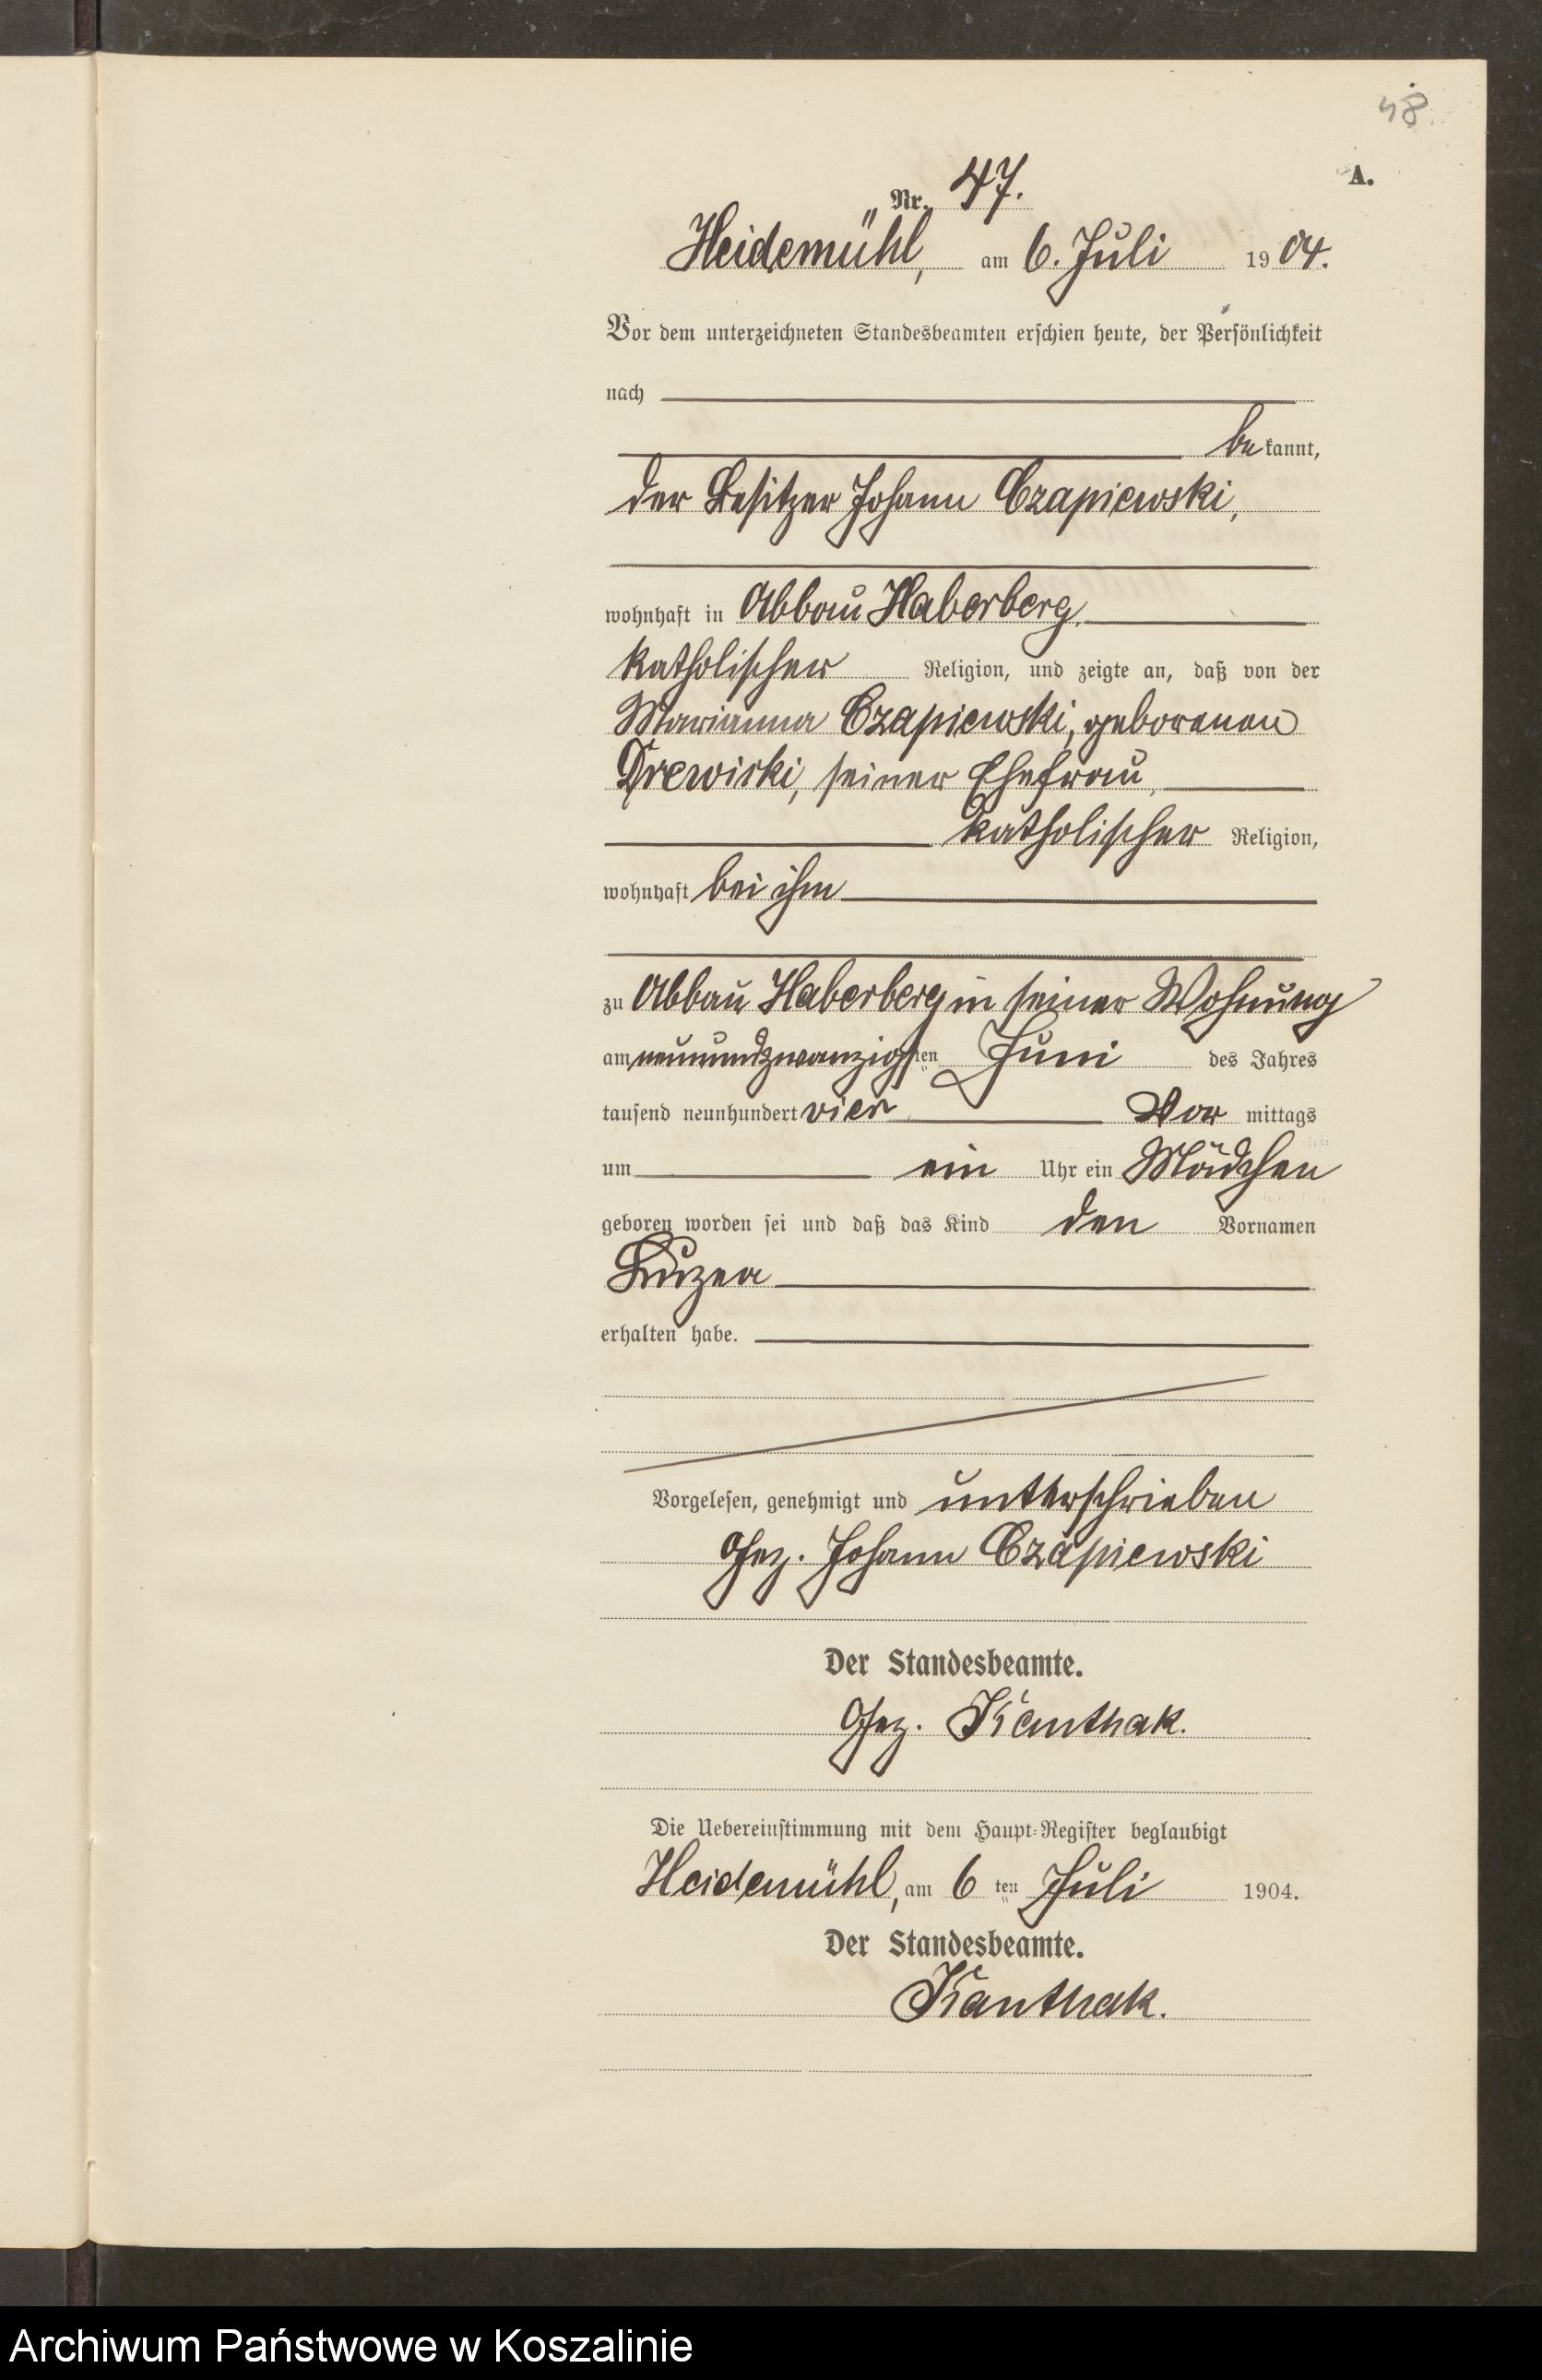 48.
A.
Nr. 47.
Heidemühl, am 6. Juli 1904.
Vor dem unterzeichneten Standesbeamten erschien heute, der Persönlichkeit
nach
be kannt,
der Besitzer Johann Czapiewski,
wohnhaft in Abbau Haberberg,
katholischer Religion, und zeigte an, daß von der
Marianna Czapiewski, geborenen
Drewiski, seiner Ehefrau,
katholischer Religion,
wohnhaft bei ihm
zu Abbau Haberberg in seiner Wohnung
am neunundzwanzigsten Juni des Jahres
tausend neunhundert vier Vor mittags
um ein Uhr ein Mädchen
geboren worden sei und daß das Kind den Vornamen
erhalten habe.
Vorgelesen, genehmigt und unterschrieben
Gez. Johann Czapiewski
Der Standesbeamte.
Gez. Kanthak.
Die Uebereinstimmung mit dem Haupt-Register beglaubigt
Heidemühl, am 6 ten Juli 1904.
Der Standesbeamte.
Kanthak.
Archiwum Państwowe w Koszalinie